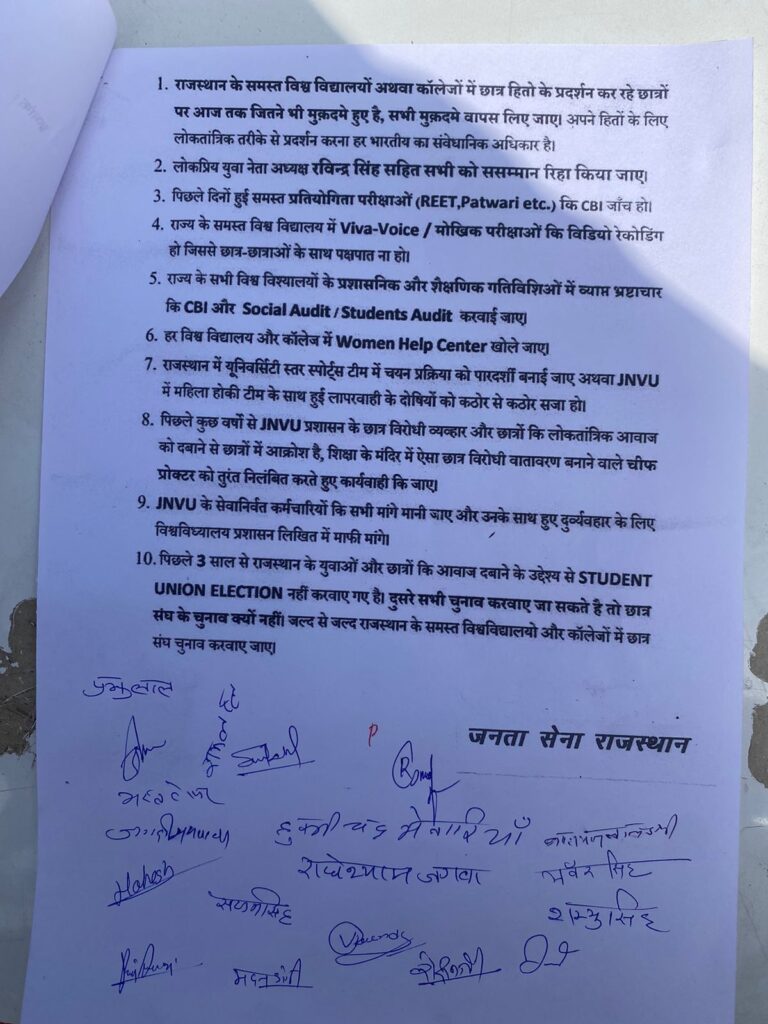 1. राजस्थान के समस्त विश्व विद्यालयों अथवा कॉलेजों में छात्र हितो के प्रदर्शन कर रहे छात्रों
पर आज तक जितने भी मुक़दमे हुए है, सभी मुकदमे वापस लिए जाए। अपने हितों के लिए
लोकतांत्रिक तरीके से प्रदर्शन करना हर भारतीय का संवेधानिक अधिकार है।
2. लोकप्रिय युवा नेता अध्यक्ष रविन्द्र सिंह सहित सभी को ससम्मान रिहा किया जाए।
3. पिछले दिनों हुई समस्त प्रतियोगिता परीक्षाओं (REET,Patwari etc.) कि CBI जाँच हो।
4. राज्य के समस्त विश्व विद्यालय में Viva-Voice / मोखिक परीक्षाओं कि विडियो रेकोडिंग
हो जिससे छात्र-छात्राओं के साथ पक्षपात ना हो।
5. राज्य के सभी विश्व विश्यालयों के प्रशासनिक और शैक्षणिक गतिविशिओं में व्याप्त भ्रष्टाचार
कि CBI और Social Audit / Students Audit करवाई जाए।
6. हर विश्व विद्यालय और कॉलेज में Women Help Center खोले जाए।
7. राजस्थान में यूनिवर्सिटी स्तर स्पोर्ट्स टीम में चयन प्रक्रिया को पारदर्शी बनाई जाए अथवा JNVU
में महिला होकी टीम के साथ हुई लापरवाही के दोषियों को कठोर से कठोर सजा हो।
8. पिछले कुछ वर्षो से JNVU प्रशासन के छात्र विरोधी व्यव्हार और छात्रों कि लोकतांत्रिक आवाज
को दबाने से छात्रों में आक्रोश है, शिक्षा के मंदिर में ऐसा छात्र विरोधी वातावरण बनाने वाले चीफ
प्रोक्टर को तुरंत निलंबित करते हुए कार्यवाही कि जाए।
9. JNVU के सेवानिर्वत कर्मचारियों कि सभी मांगे मानी जाए और उनके साथ हुए दुर्व्यवहार के लिए
विश्वविध्यालय प्रशासन लिखित में माफी मांगे।
10. पिछले 3 साल से राजस्थान के युवाओं और छात्रों कि आवाज दबाने के उद्देश्य से STUDENT
UNION ELECTION नहीं करवाए गए है। दुसरे सभी चुनाव करवाए जा सकते है तो छात्र
संघ के चुनाव क्यों नहीं। जल्द से जल्द राजस्थान के समस्त विश्वविद्यालयो और कॉलेजों में छात्र
संघ चुनाव करवाए जाए।
जनता सेना राजस्थान
हुक्मीचंद मेवारियाँ
राधेश्याम जगवा
Mahesh
भंवर सिंह
शम्भुसिंह